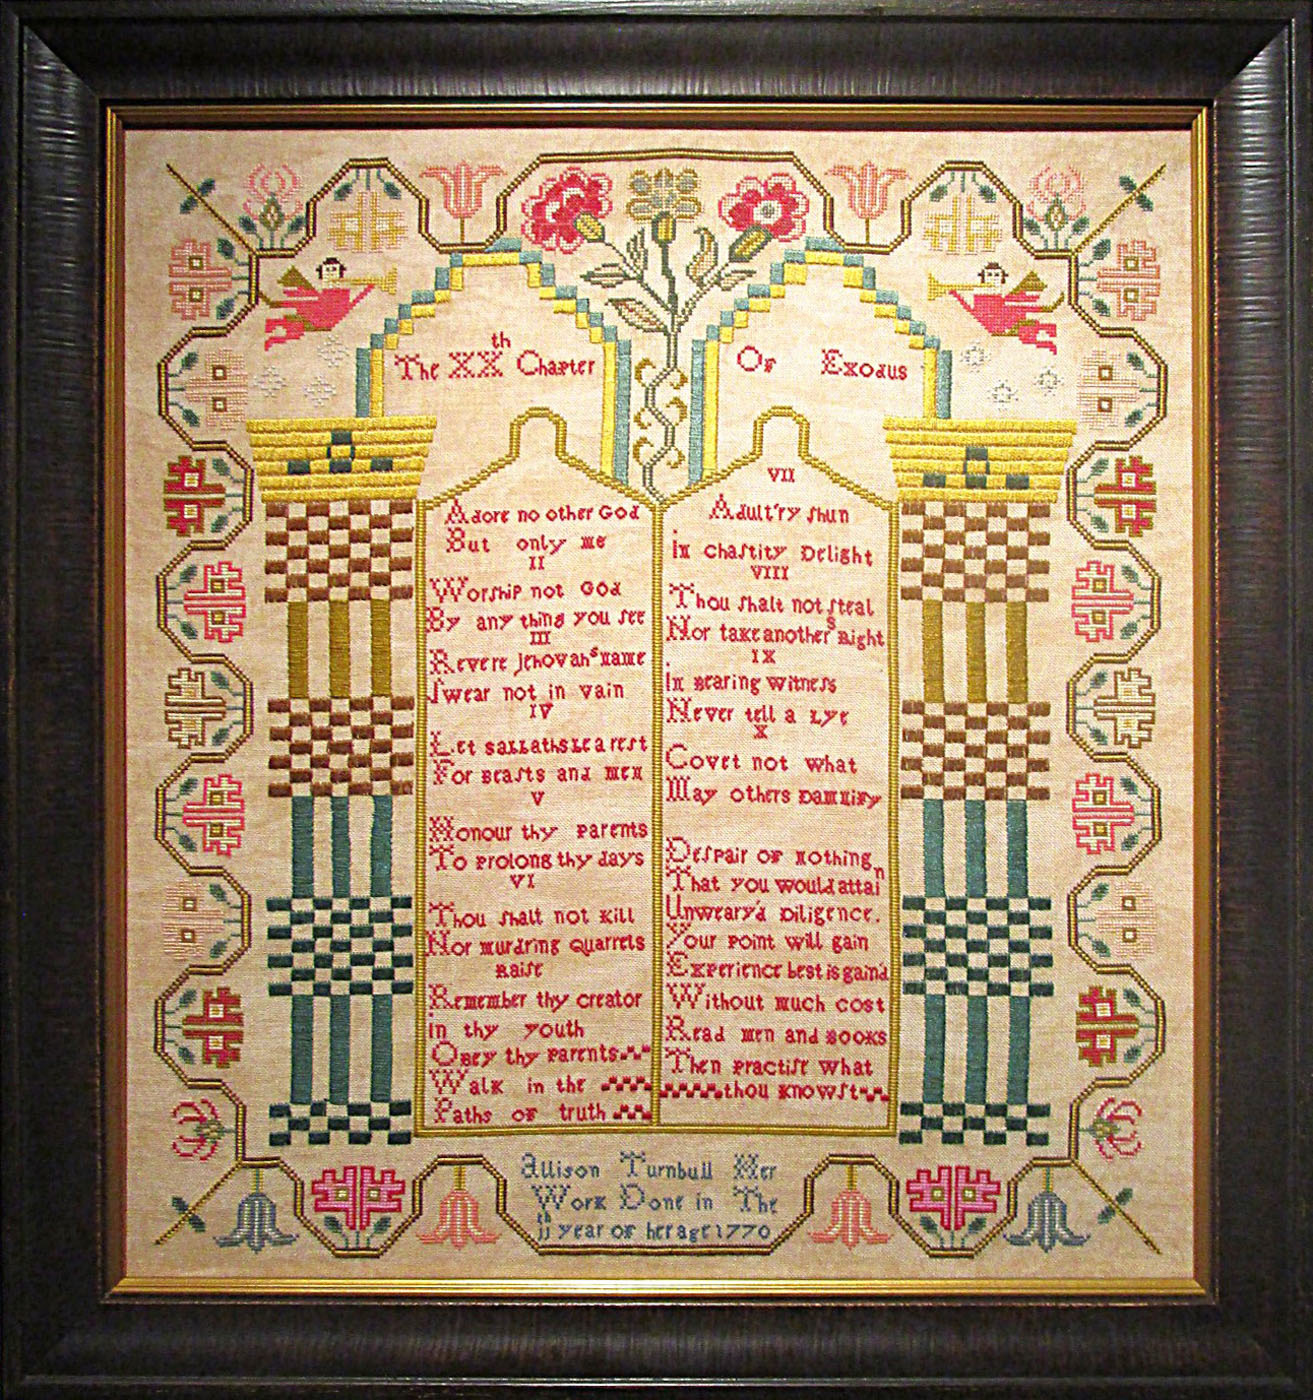 The XXth Chapter Of Exodus
Adore no other God
But only me
II
Worship not God
By any thing you see
III
Revere Jehovahs name
Swear not in vain
IV
Let sabbaths be a rest
For beasts and men
V
Honour thy parents
To prolong thy days
VI
Thou shalt not kill
Nor murdring quarrels
raise
Remember thy creator
in thy youth
Obey thy parents
Walk in the
Paths of truth
VII
Adult'ry shun
in chastity delight
VIII
Thou shalt not steal
Nor take anothers right
IX
in bearing witness
Never tell a lye
X
Covet not what
May others damnify
Despair of nothing
That you would attain
Unweary'd diligence.
Your point will gain
Experience best is gain'd
Without much cost
Read men and books
Then practise what
thou knowst
Allison Turnbull Her
Work Done in The
11th year of her age 1770